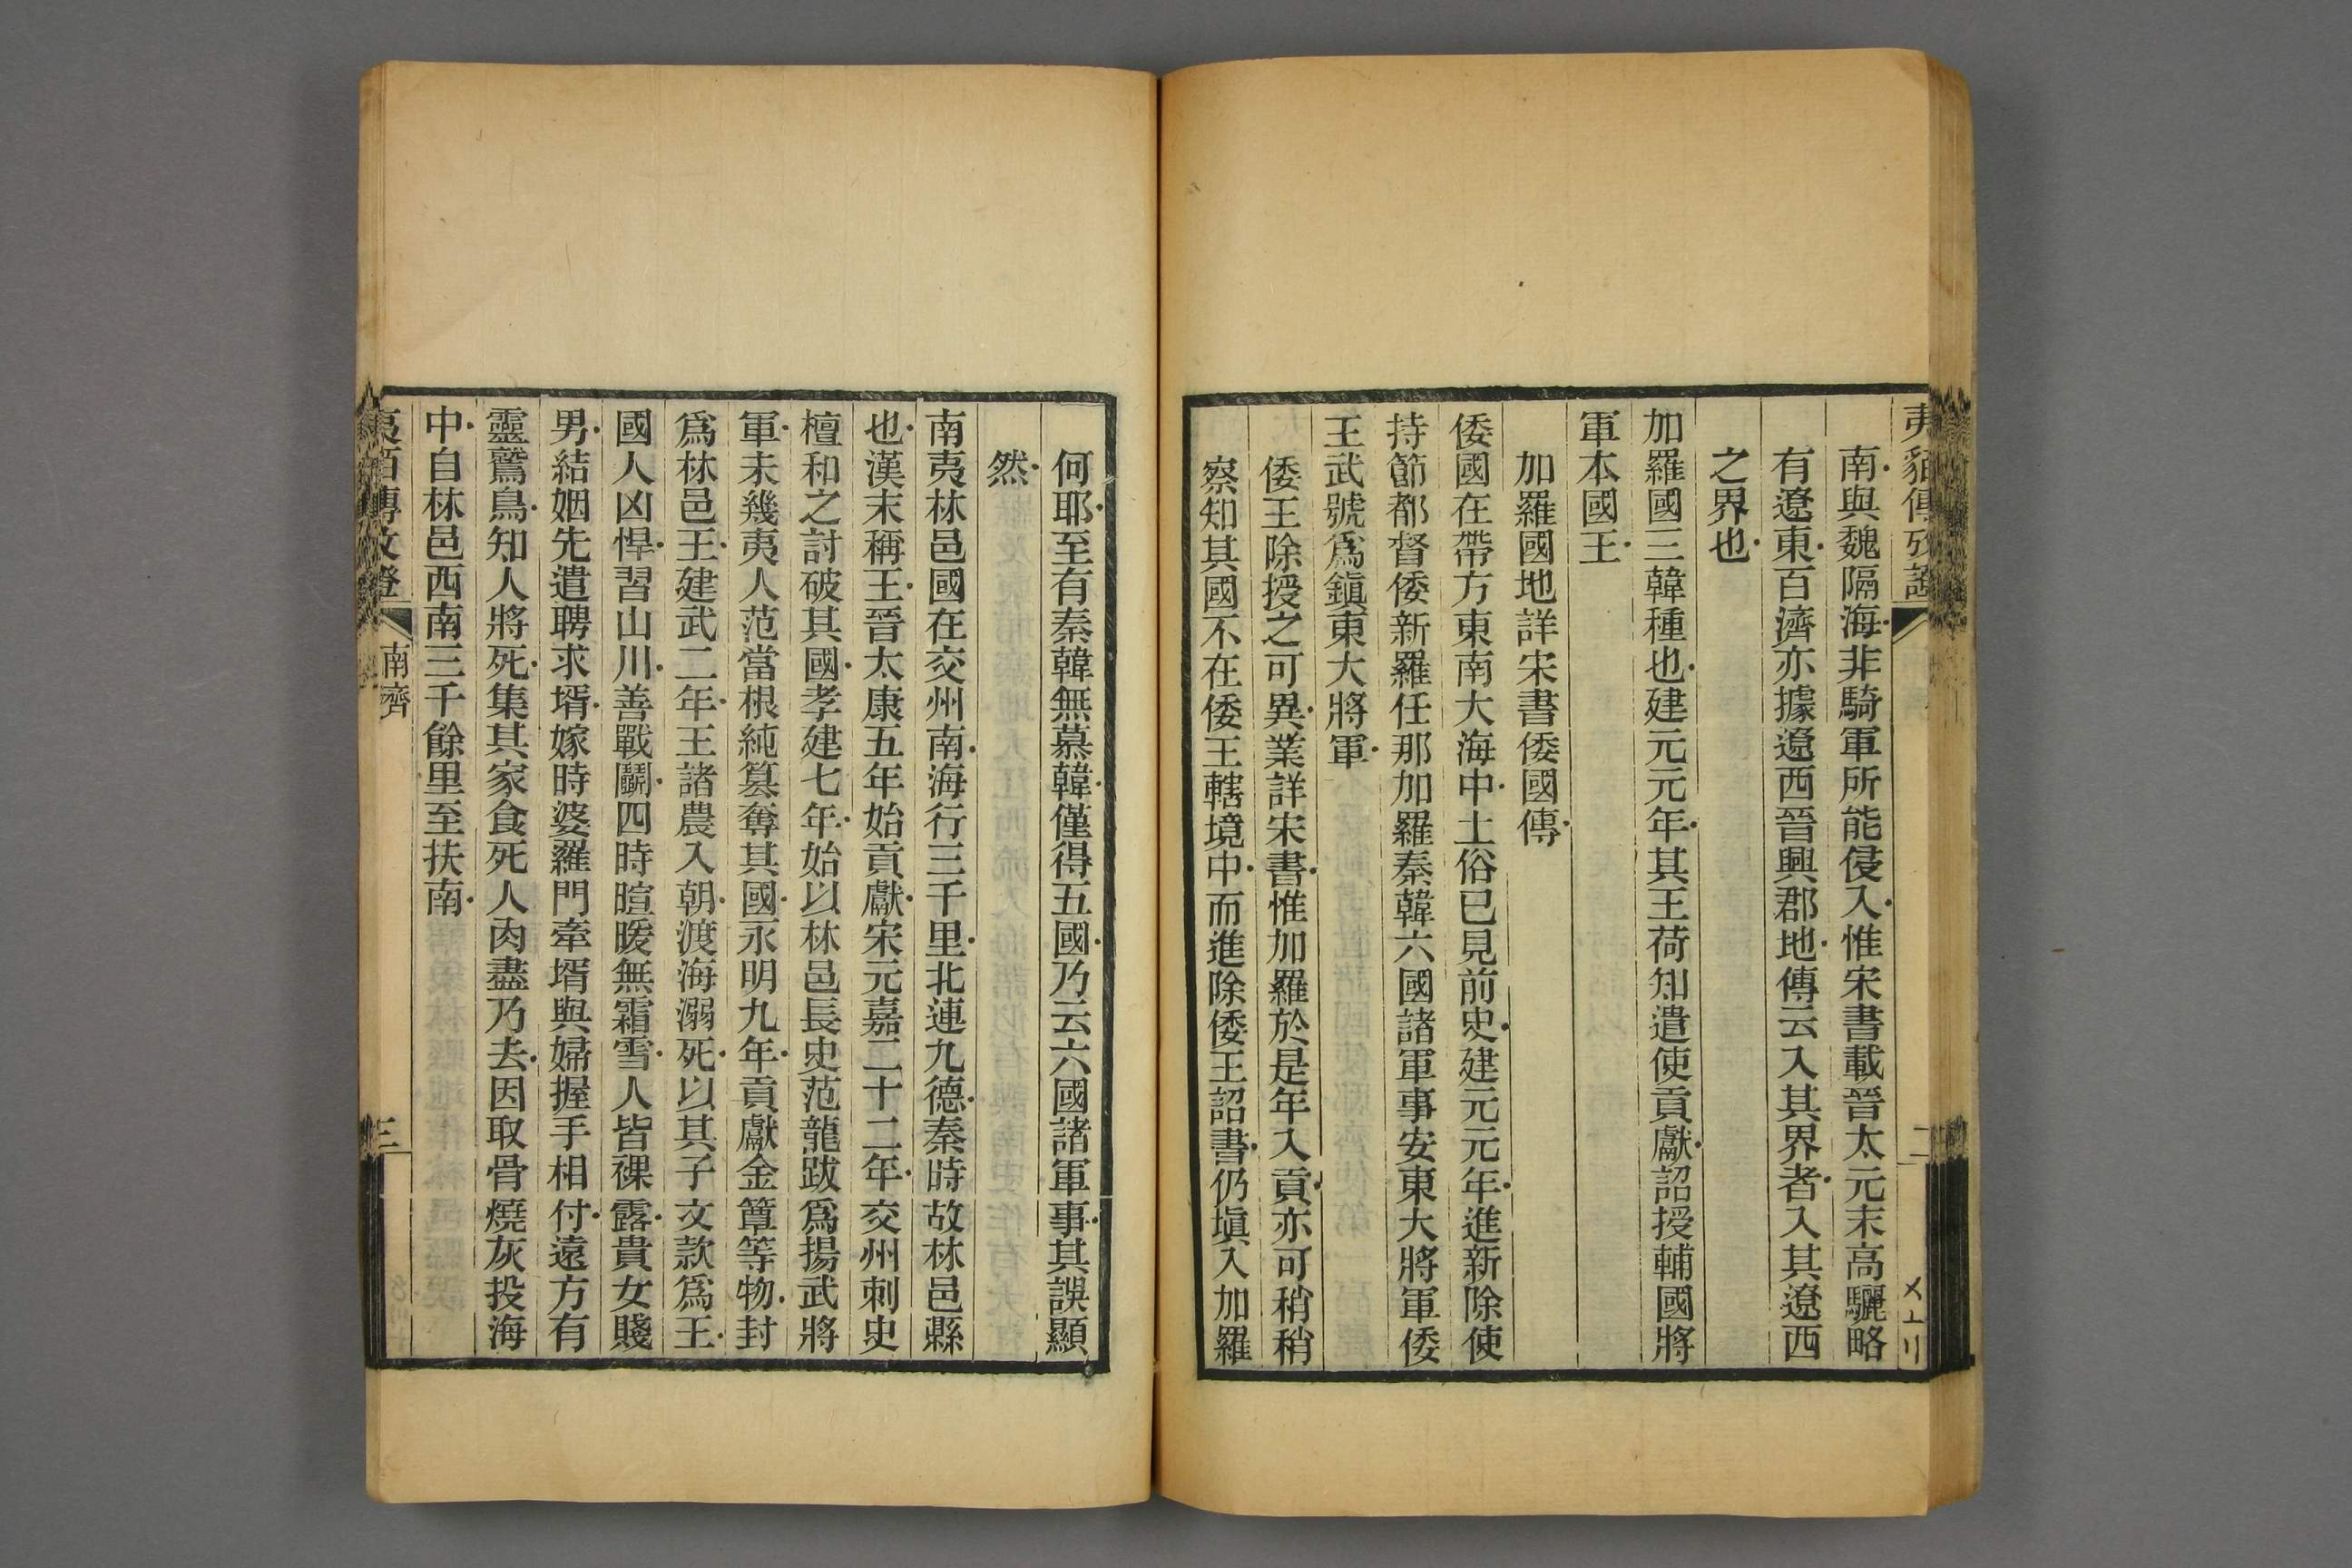 夷貊傳攷證 二
南與魏隔海非騎軍所能侵入惟宋書載晉太元末高驪略
有遼東百濟亦據遼西晉興郡地傳云入其界者入其遼西
之界也
加羅國三韓種也建元元年其王荷知遣使貢獻詔授輔國將
軍本國王
加羅國地詳宋書倭國傳
倭國在帶方東南大海中土俗已見前史建元元年進新除使
持節都督倭新羅任那加羅秦韓六國諸軍事安東大將軍倭
王武號爲鎭東大將軍
倭王除授之可異業詳宋書惟加羅於是年入貢亦可稍稍
察知其國不在倭王轄境中而進除倭王詔書仍塡入加羅
何耶至有秦韓無慕韓僅得五國乃云六國諸軍事其誤顯
然
南夷林邑國在交州南海行三千里北連九德秦時故林邑縣
也漢末稱王晉太康五年始貢獻宋元嘉二十二年交州刺史
檀和之討破其國孝建七年始以林邑長史范龍跋爲揚武將
軍未幾夷人范當根純篡奪其國永明九年貢獻金簟等物封
爲林邑王建武二年王諸農入朝渡海溺死以其子文款爲王
國人凶悍習山川善戰鬭四時暄暖無霜雪人皆裸露貴女賤
男結姻先遣聘求壻嫁時婆羅門牽壻與婦握手相付遠方有
靈鷲鳥知人將死集其家食死人肉盡乃去因取骨燒灰投海
中自林邑西南三千餘里至扶南
夷貊傳攷證 南齊 三